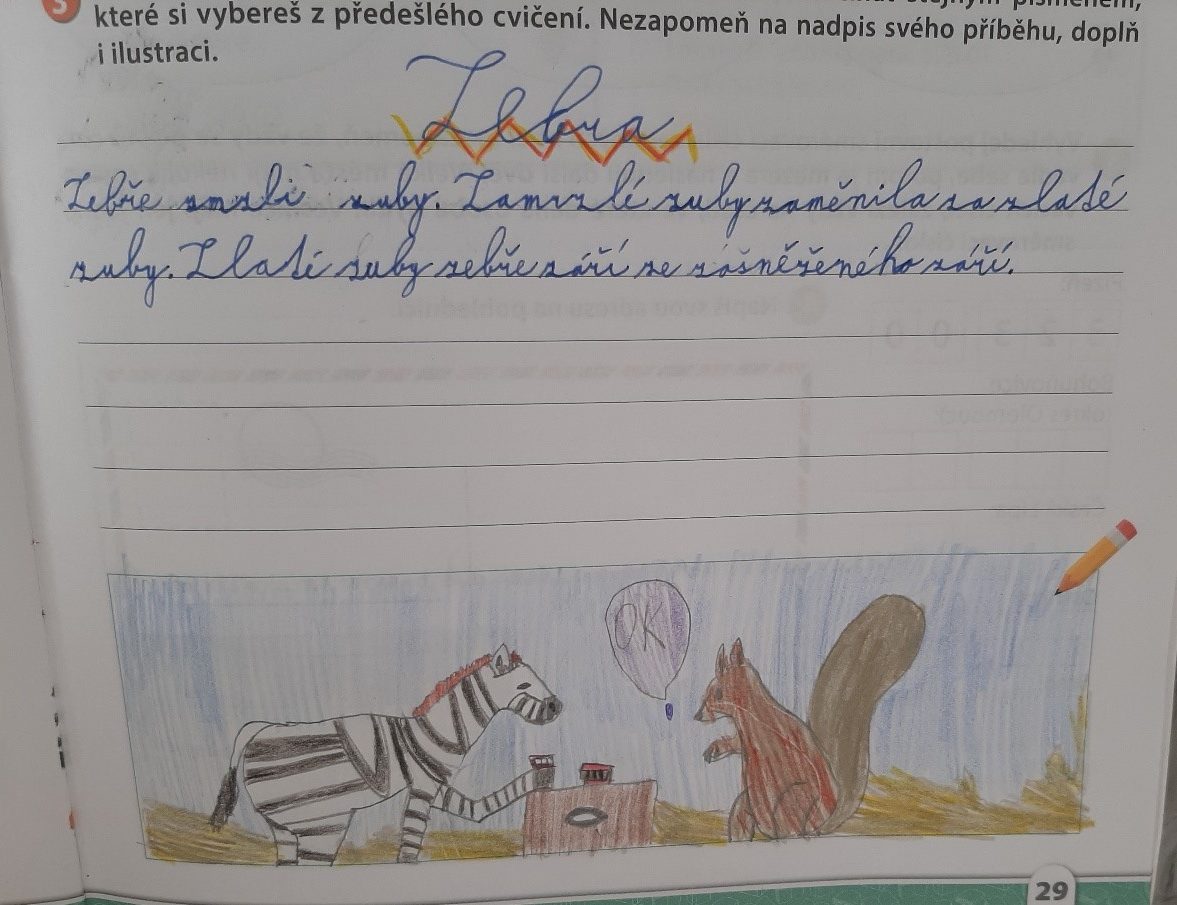 stejným písmenem,
které si vybereš z předešlého cvičení. Nezapomeň na nadpis svého příběhu, doplň
i ilustraci.
Zebra
Zebře zmrzli zuby. Zamrzlé zuby zaměnila za zlaté
zuby. Zlaté zuby zebře září ze zášněženého září.
OK
29